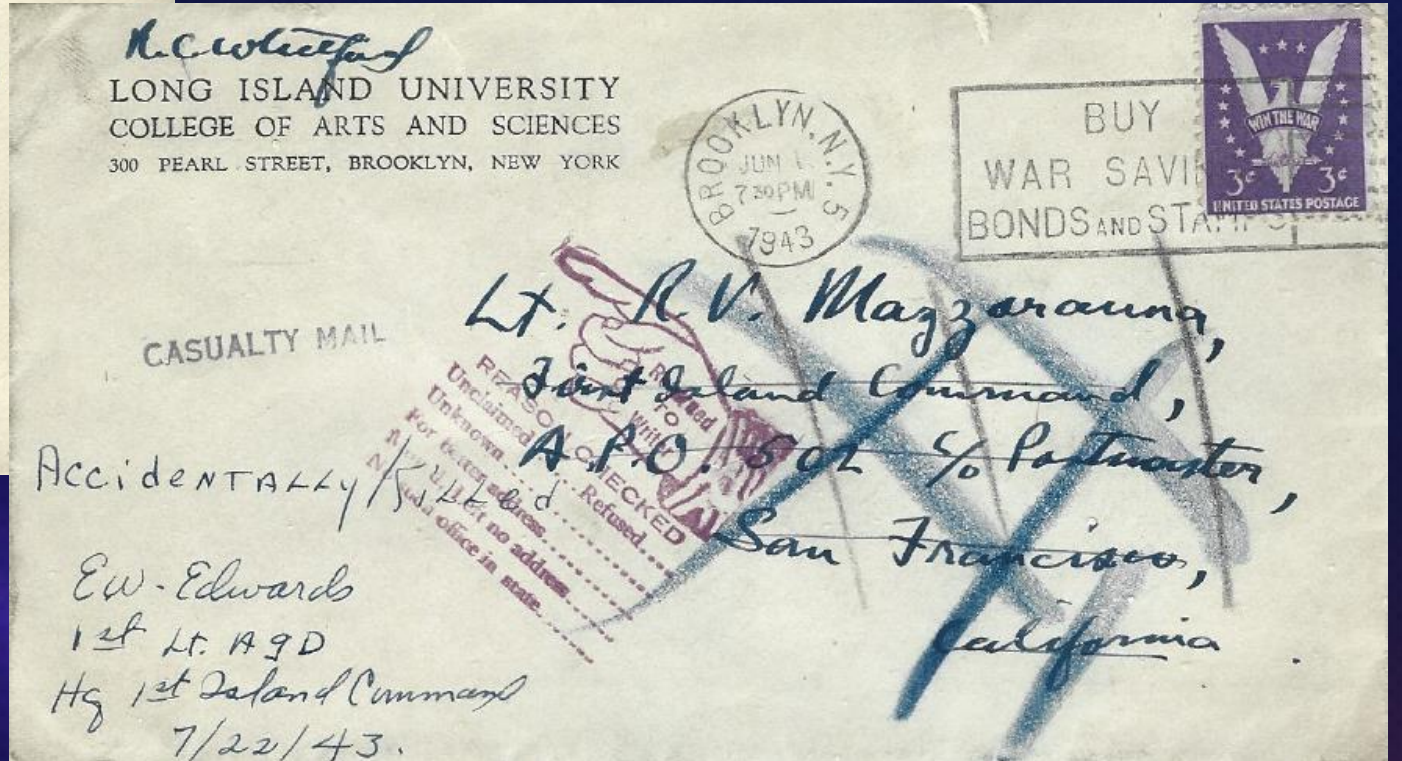 R.C. Whitford
LONG ISLAND UNIVERSITY
COLLEGE OF ARTS AND SCIENCES
300 PEARL STREET, BROOKLYN, NEW YORK
BROOKLYN, N.Y. 5
JUN
7 30 PM
1943
BUY
WAR SAVI
BONDS AND STAMPS
WIN THE WAR
3¢ 3¢
UNITED STATES POSTAGE
CASUALTY MAIL
Lt. R. V. Mazzarauna,
First Island Command,
A.P.O. 502 c/o Postmaster,
San Francisco,
California
Returned
TO
Writer
REASON CHECKED
Unclaimed Refused
Unknown
For better address
no address
office in state
Accidentally Killed
E W - Edwards
1st Lt. AGD
Hq 1st Island Command
7/22/43.